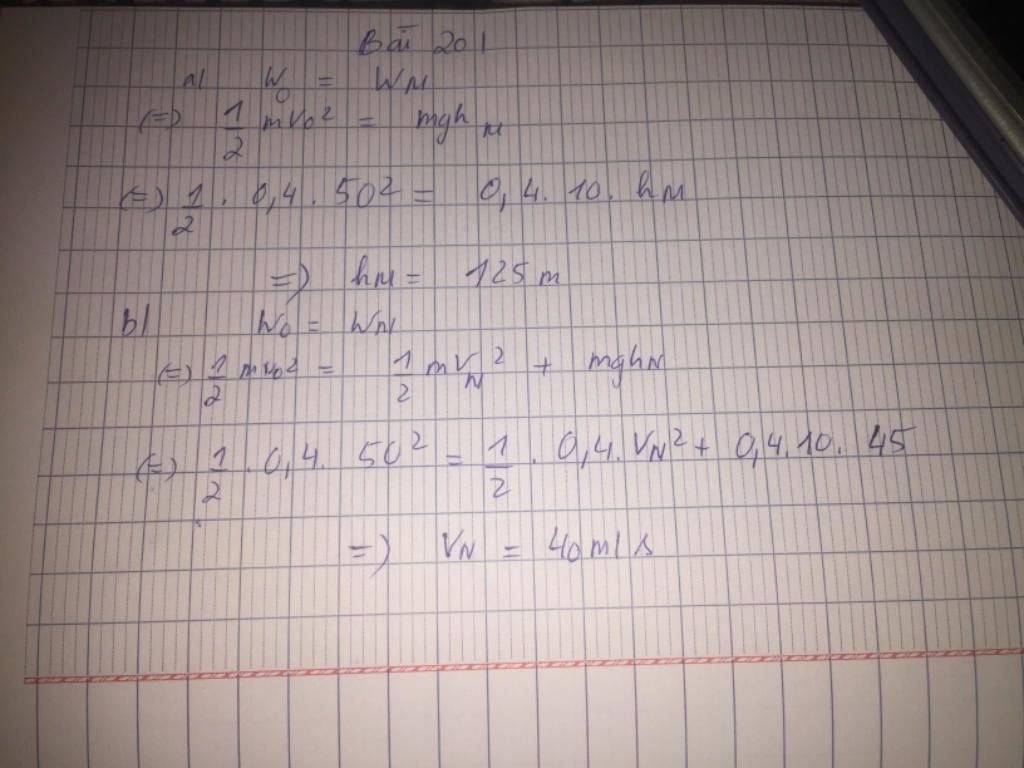 Bài 20 |
a/ W₀ = W_M
(=) 1/2 mv₀² = mgh_M
(=) 1/2 . 0,4 . 50² = 0,4 . 10 . h_M
=) h_M = 125 m
b/ W₀ = W_N
(=) 1/2 mv₀² = 1/2 mv_N² + mgh_N
(=) 1/2 . 0,4 . 50² = 1/2 . 0,4 . V_N² + 0,4 . 10 . 45
=) V_N = 40 m/s